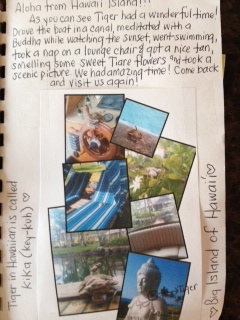 Aloha from Hawaii Island!!!
As you can see Tiger had a wonderful time!
Drove the boat in a canal, meditated with a
Buddha while watching the sunset, went swimming,
took a nap on a lounge chair & got a nice tan,
smelling some sweet Tiare flowers and took a
scenic picture. We had amazing time! Come back
and visit us again!
Tiger in Hawaiian is called
KiKA (key-kuh) ♡
Big Island of Hawaii ♡
Tiger